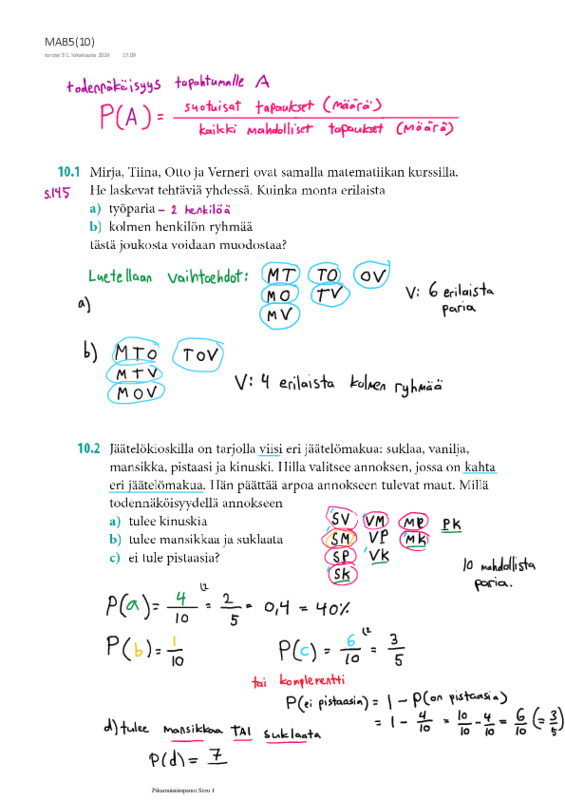 MAB5(10)
torstai 31. lokakuuta 2024 17.08
todennäköisyys tapahtumalle A
P(A) = suotuisat tapaukset (määrä) / kaikki mahdolliset tapaukset (määrä)
10.1 Mirja, Tiina, Otto ja Verneri ovat samalla matematiikan kurssilla.
s.145 He laskevat tehtäviä yhdessä. Kuinka monta erilaista
a) työparia – 2 henkilöä
b) kolmen henkilön ryhmää
tästä joukosta voidaan muodostaa?
Luetellaan vaihtoehdot: MT TO OV
a) MO TV V: 6 erilaista
MV paria
b) MTO TOV
MTV
MOV V: 4 erilaista kolmen ryhmää
10.2 Jäätelökioskilla on tarjolla viisi eri jäätelömakua: suklaa, vanilja,
mansikka, pistaasi ja kinuski. Hilla valitsee annoksen, jossa on kahta
eri jäätelömakua. Hän päättää arpoa annokseen tulevat maut. Millä
todennäköisyydellä annokseen
a) tulee kinuskia
b) tulee mansikkaa ja suklaata
c) ei tule pistaasia?
SV VM MP PK
SM VP MK
SP VK
SK
10 mahdollista
paria.
P(a) = 4/10 (2 = 2/5 = 0,4 = 40%
P(b) = 1/10 P(c) = 6/10 (2 = 3/5
tai komplementti
P(ei pistaasia) = 1 - P(on pistaasia)
= 1 - 4/10 = 10/10 - 4/10 = 6/10 (= 3/5)
d) tulee mansikkaa TAI suklaata
P(d) = 7
Pikamuistiinpanot Sivu 1